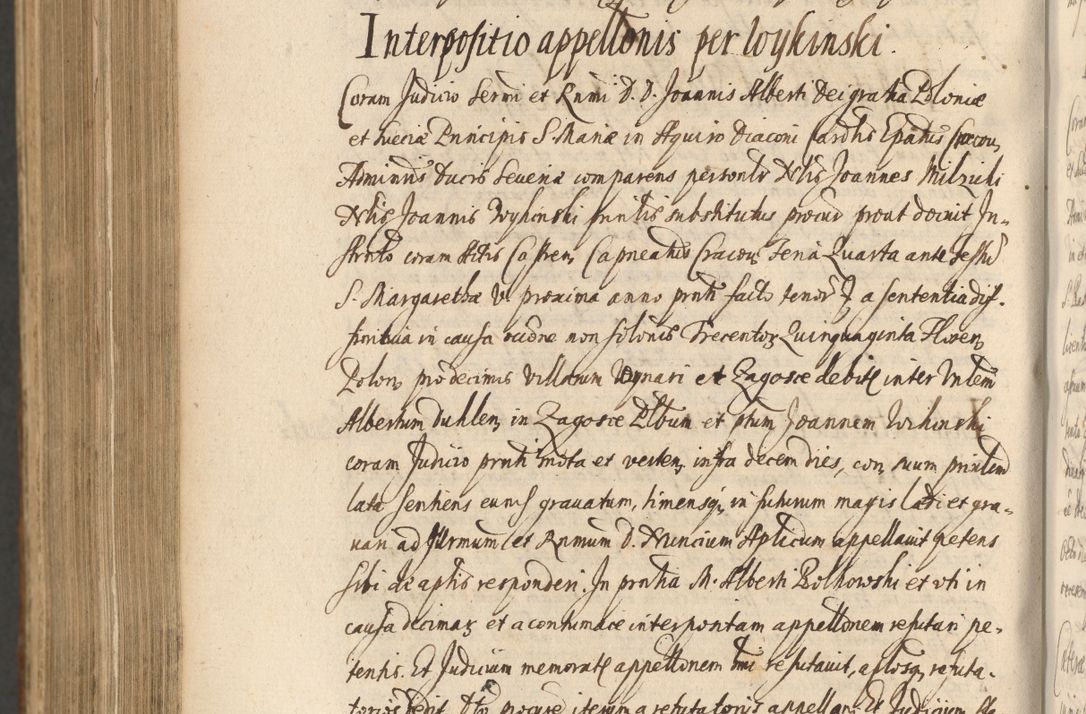 Interpositio appellonis per Woykinski.
Coram Judicio Sermi et Rnmi D. D. Joannis Alberti Dei gratia Poloniæ
et Sueciæ Principis S. Mariæ in Aquiro Diaconi Cardlis Epatus Cracou,
Adminris Ducis Severiæ comparens personlr Nlis Joannes Milzicki
Nlis Joannis Woykinski prntis substitutus procur prout docuit In-
strnto coram Actis Castren, Capneatus Cracou, feria Quarta ante festu
S. Margarethæ V. proxima anno prnti facto tenor a sententia dif-
finitiua in causa raone non solonis Trecentor, Quinquaginta Floren,
Polon, pro decimis villarum et Zagosce debit inter Vnlem
Albertum Duhlen, in Zagosce Plbum et ptum Joannem Woikinski
coram Judicio prnti mota et verten, infra decem dies, con, suum prinlem
lata sentiens eum grauatum, timensq, in futurum magis lædi et gra-
uari ad Illrmum et Rnmum D. Nuncium Aplicum appellauit petens
sibi de aptis responderi. In prntia M. Alberti Bolkowski et vti in
causa decimar, et a contumace interpontam appellonem refutari pe-
tentis. Et Judicium memorate appellonem refutauit, refuta-
torios dedit. procur iterum a refutatoriis appellau. Et Judicium